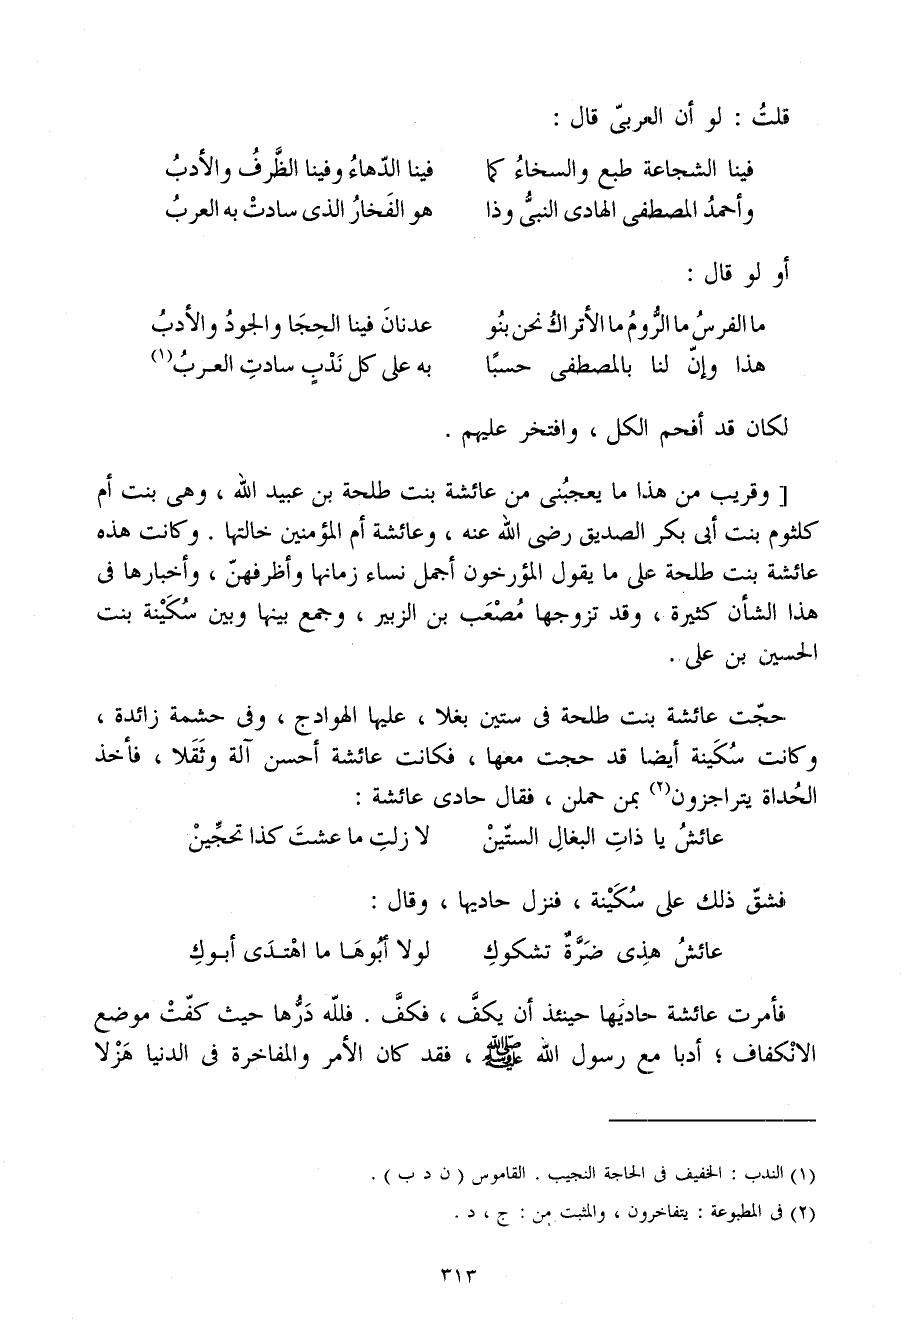 قلتُ : لو أن العربىّ قال :
فينا الشجاعة طبع والسخاءُ كما فينا الدّهاءُ وفينا الظَّرفُ والأدبُ
وأحمدُ المصطفى الهادى النبىُّ وذا هو الفَخارُ الذى سادتْ به العربُ
أو لو قال :
ما الفرسُ ما الرُّومُ ما الأتراكُ نحن بنُو عدنانَ فينا الحِجَا والجودُ والأدبُ
هذا وإنّ لنا بالمصطفى حسبًا به على كل نَدْبٍ سادتِ العربُ(١)
لكان قد أفحم الكل ، وافتخر عليهم .
[ وقريب من هذا ما يعجبُنى من عائشة بنت طلحة بن عبيد الله ، وهى بنت أم
كلثوم بنت أبى بكر الصديق رضى الله عنه ، وعائشة أم المؤمنين خالتها . وكانت هذه
عائشة بنت طلحة على ما يقول المؤرخون أجمل نساء زمانها وأظرفهنّ ، وأخبارها فى
هذا الشأن كثيرة ، وقد تزوجها مُصْعَب بن الزبير ، وجمع بينها وبين سُكَيْنة بنت
الحسين بن على .
حجّت عائشة بنت طلحة فى ستين بغلا ، عليها الهوادج ، وفى حشمة زائدة ،
وكانت سُكَينة أيضا قد حجت معها ، فكانت عائشة أحسن آلة وثَقَلا ، فأخذ
الحُداة يتراجزون(٢) بمن حملن ، فقال حادى عائشة :
عائشُ يا ذاتِ البغالِ الستّينْ لا زلتِ ما عشتَ كذا تحجِّينْ
فشقّ ذلك على سُكَيْنة ، فنزل حاديها ، وقال :
عائشُ هذِى ضَرَّةٌ تشكوكِ لولا أبُوهَا ما اهْتدَى أبوكِ
فأمرت عائشة حاديَها حينئذ أن يكفَّ ، فكفَّ . فللّه دَرُّها حيث كفّتْ موضع
الانْكفاف ؛ أدبا مع رسول الله ﷺ ، فقد كان الأمر والمفاخرة فى الدنيا هَزْلا
(١) الندب : الخفيف فى الحاجة النجيب . القاموس ( ن د ب ) .
(٢) فى المطبوعة : يتفاخرون ، والمثبت من : ج ، د .
٣١٣